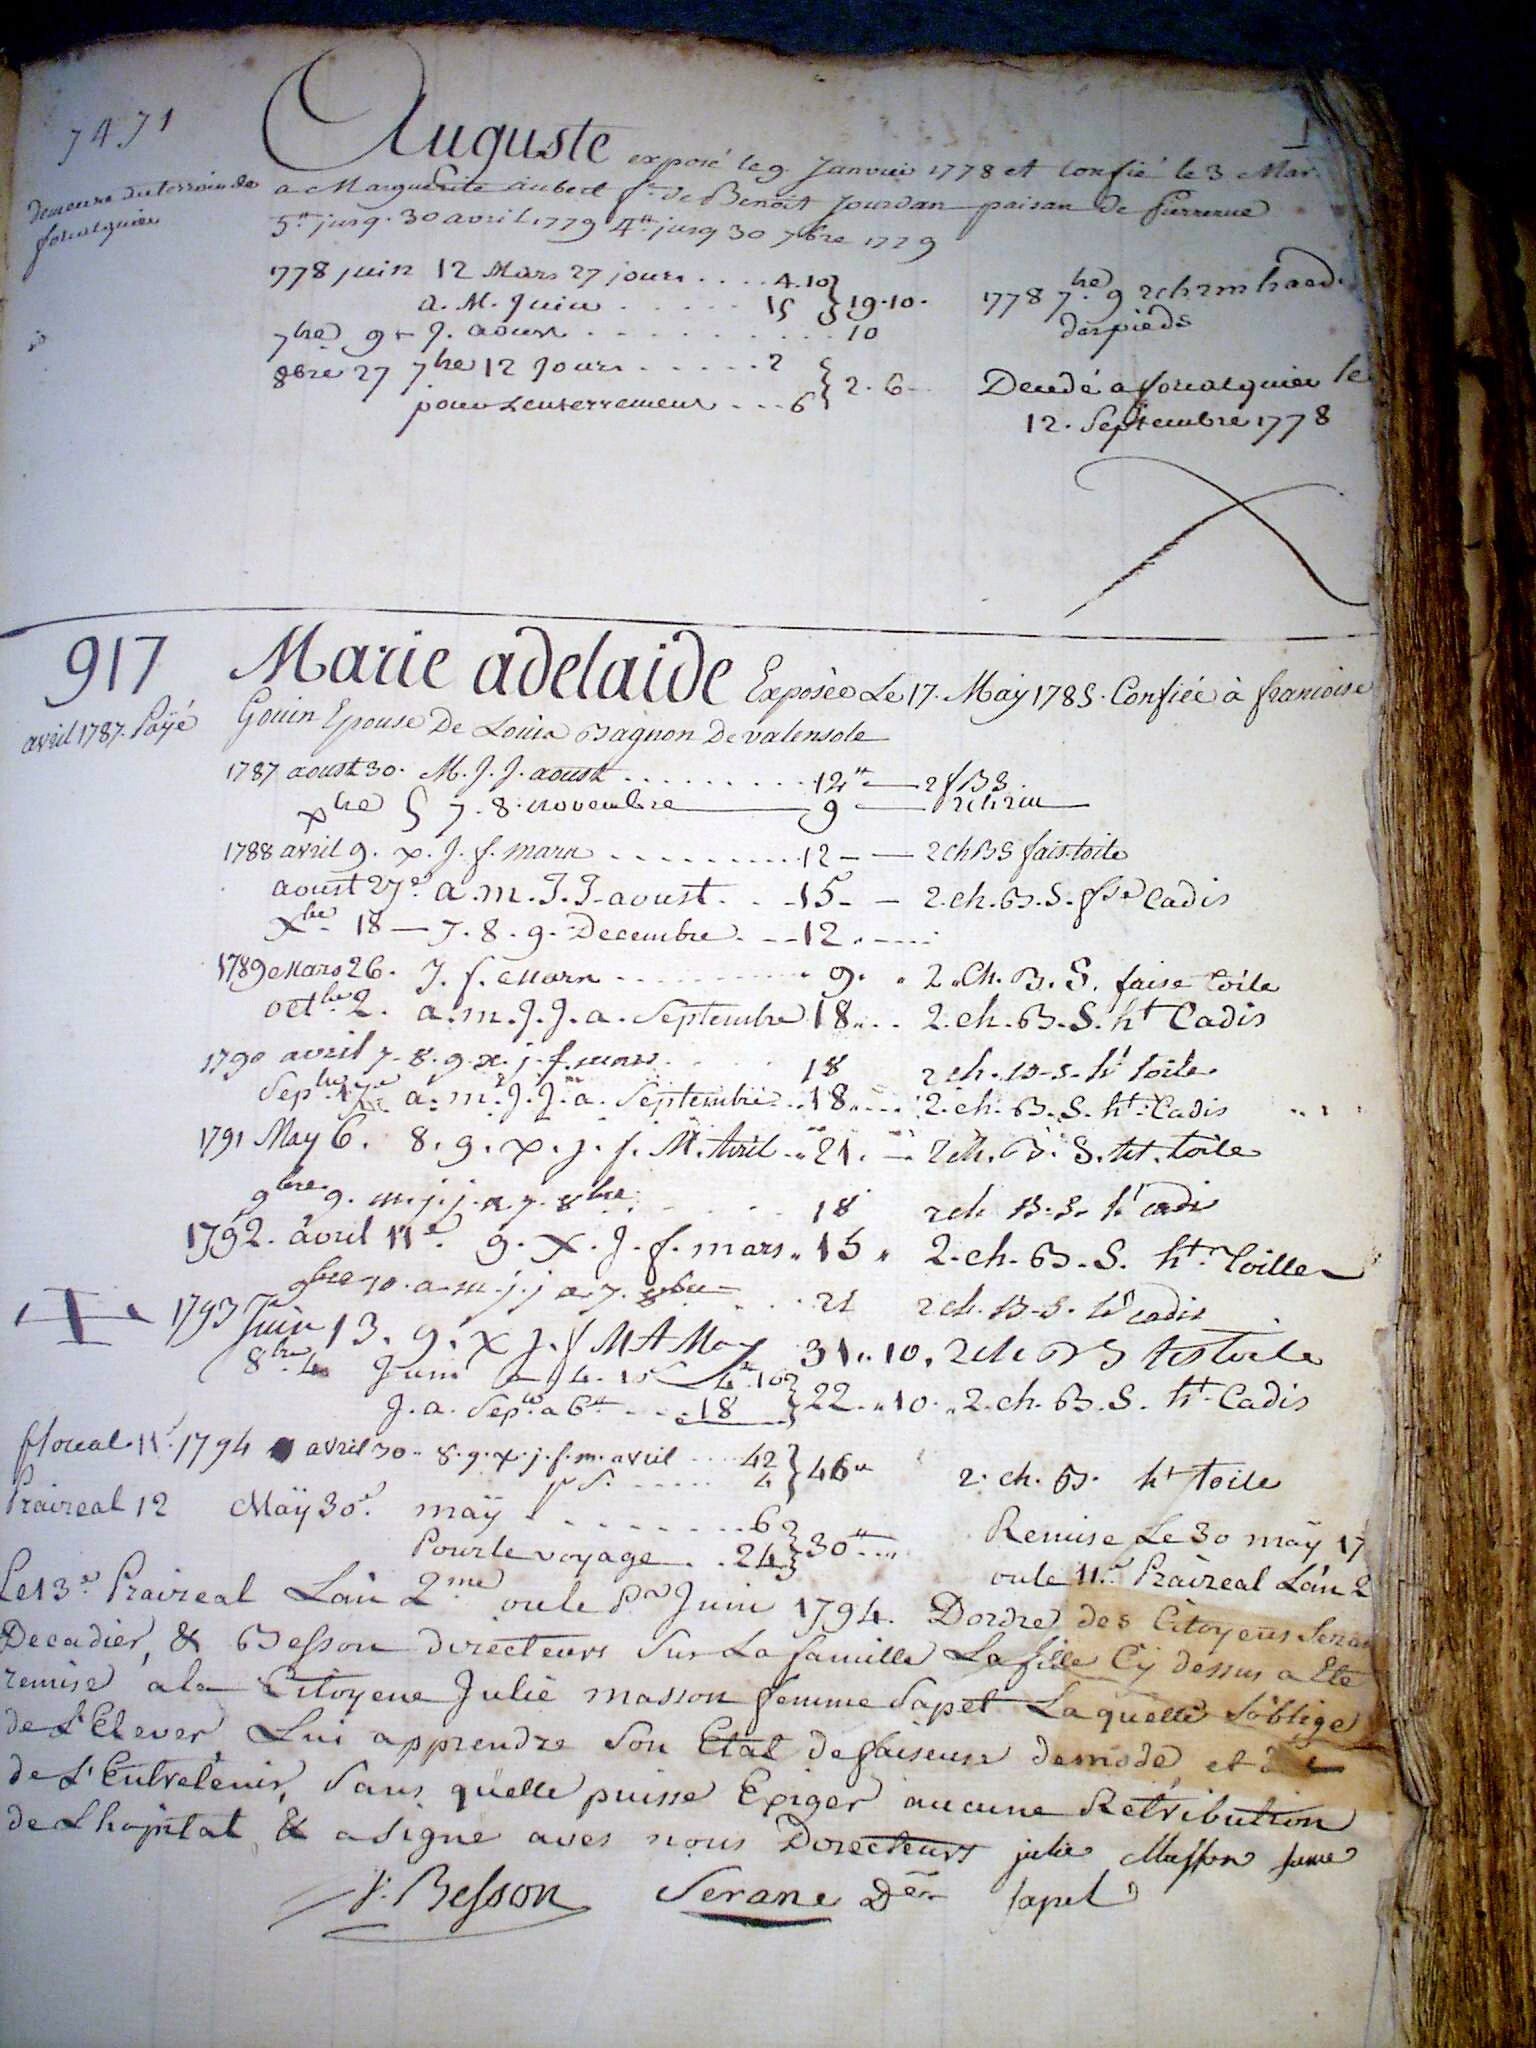 7471
1
Auguste exposé le 9 Janvier 1778 et confié le 3 Mar.
a Marguerite aubert f.e de Benoit Jourdan paisan de pierrerue
demeure du terroir de
forcalquier
5tt jusq. 30 avril 1779 4tt jusq 30 7bre 1779
1778 juin 12 Mars 27 jours .... 4.10
a. M. Juin ..... 15 } 19.10.
1778 7bre 9 2 ch 2 m
des pieds
7bre 9 J. aoust .......... 10
8bre 27 7bre 12 Jours ...... 2
pour Lenterrement ... 6 } 2.6
Decedé a forcalquier le
12. Septembre 1778
917 Marie adelaide Exposée Le 17. May 1785. Confiée à francoise
avril 1787. Payé Gouin Epouse De Louis Bagnon De valensole
1787 aoust 30. M. J. J. aoust ........ 12tt — 2 f B S.
xbre 5 7. 8. novembre — 9 —
1788 avril 9. x. J. f. mars .......... 12 — — 2 ch B S fais. toile
aoust 27e a. m. J. J. aoust. . - 15 - — 2. ch. B. S. fse Cadis
Xbre 18 — 7. 8. 9. Decembre. -- 12 . ----.
1789 Mars 26. J. f. Mars ........ 9. „ 2. Ch. B. S. faise toile
octbre 2. a. m. J. J. a. Septembre 18... 2. ch. B. S. ht Cadis
1790 avril 7. 8. 9. x. j. f. mars ..... 18 2 ch. B. S. ht toile
Sepbre a. m. J. J. a. Septembre .. 18 .... 2. ch. B. S. ht Cadis
1791 May 6. 8. 9. x. j. f. M. Avril .. 21. — 2 ch. B. S. ht. toile
9bre 9. m. j. j. a. 7. 8bre ...... 18 2 ch B. S. ht cadis
1792. avril 11e. 9. X. J. f. mars „ 15 „ 2. ch. B. S. ht Toille
9bre 10. a. m. j. j a. 7. 8bre .... 21 2 ch. B. S. ht cadis
1793 Juin 13. 9. x J. f M A May 31 „ 10. 2 ch B S ht toile
8bre 4 Juin a 4. 10 4tt.10
J. a. Sepbre a 6tt ... 18 } 22 „ 10. „ 2. ch. B. S. ht Cadis
floreal 11e. 1794 avril 30. 8. 9. x. j. f. m. avril ... 42
..... 4 } 46tt 2. ch. B. ht toile
Praireal 12 Maÿ 30e. maÿ ........ 6
Pour le voyage .. 24 } 30tt ...
Remise Le 30 maÿ 17
ou le 11e Praireal L'an 2
Le 13e Praireal L'an 2me ou le Pr Juin 1794. D'ordre des Citoyens Seran
Decadier, & Besson directeurs Sur La famille La fille Cy dessus a Eté
remise à la Citoyene Julie masson femme Sapet Laquelle S'oblige
de L'Elever Lui apprendre Son Etat de faiseuse de mode et
de L'Entretenir, Sans quelle puisse Exiger aucune Retribution
de Lhopital, & a signe avec nous Directeurs julie Masson fame
J. Besson Serane Dēr sapet